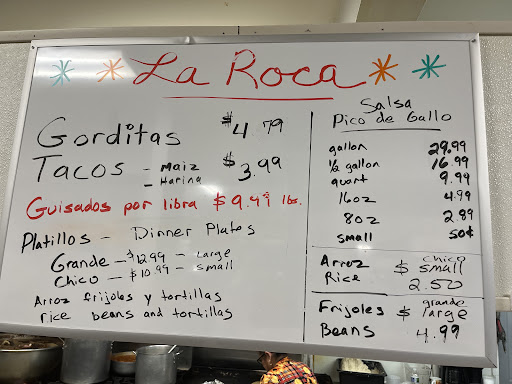 La Roca
Gorditas $4.79
Tacos - Maiz $3.99
- Harina
Guisados por libra $9.49 lbs.
Platillos - Dinner Plates
Grande - $12.99 - Large
Chico - $10.99 - Small
Arroz frijoles y tortillas
rice beans and tortillas
Salsa
Pico de Gallo
gallon 29.99
1/2 gallon 16.99
quart 9.99
16oz 4.99
8oz 2.89
small 50¢
Arroz $ chico
Rice small
2.50
Frijoles $ grande
Beans large
4.99